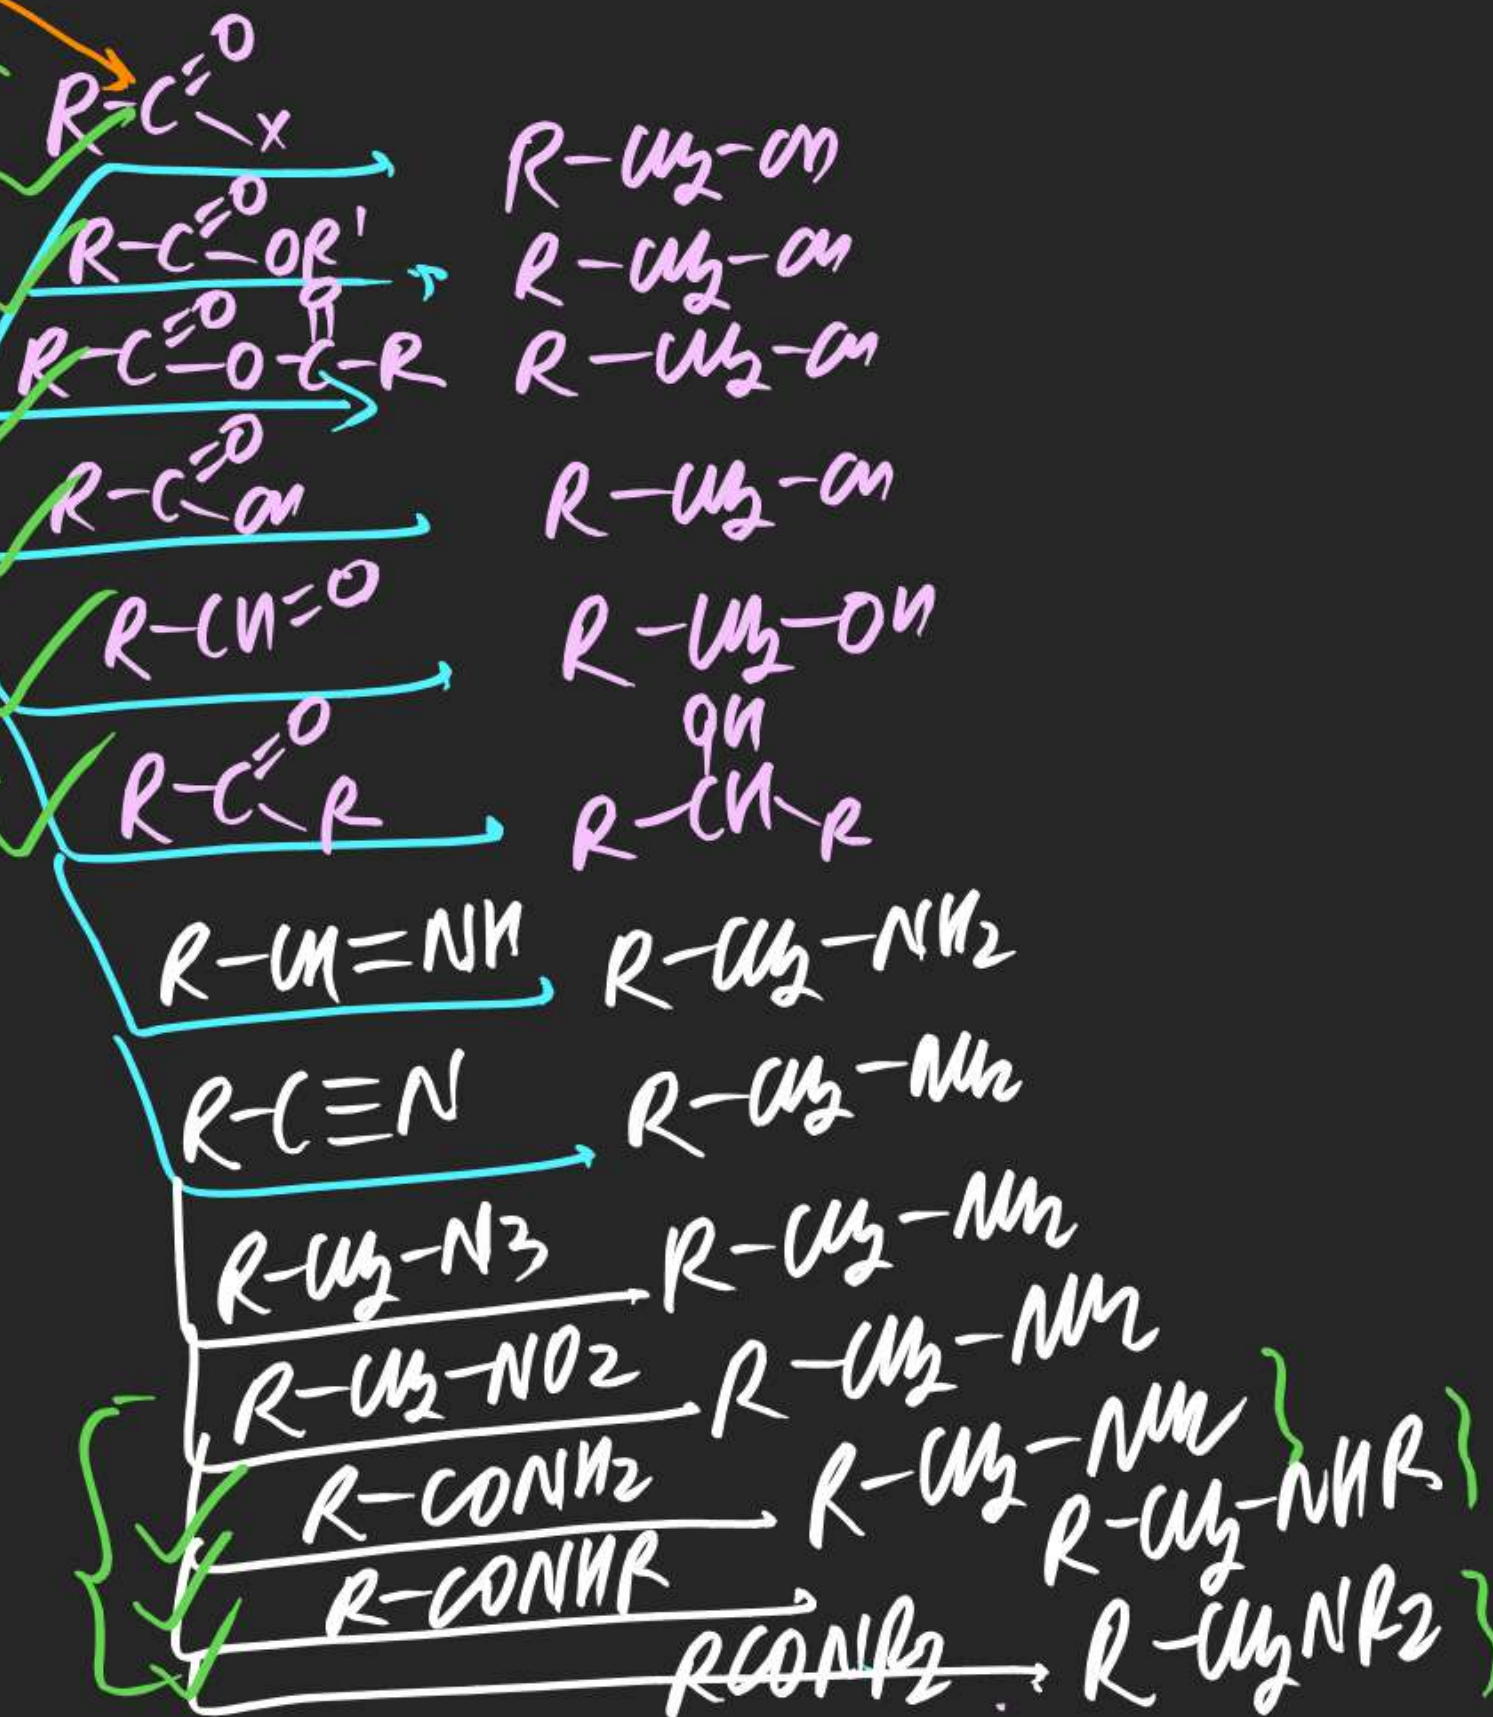 R-C(=O)-X → R-CH2-OH
R-C(=O)-OR' → R-CH2-OH
R-C(=O)-O-C(=O)-R → R-CH2-OH
R-C(=O)-OH → R-CH2-OH
R-CH=O → R-CH2-OH
R-C(=O)-R → R-CH(OH)-R
R-CH=NH → R-CH2-NH2
R-C≡N → R-CH2-NH2
R-CH2-N3 → R-CH2-NH2
R-CH2-NO2 → R-CH2-NH2
R-CONH2 → R-CH2-NH2
R-CONHR → R-CH2-NHR
RCONR2 → R-CH2NR2